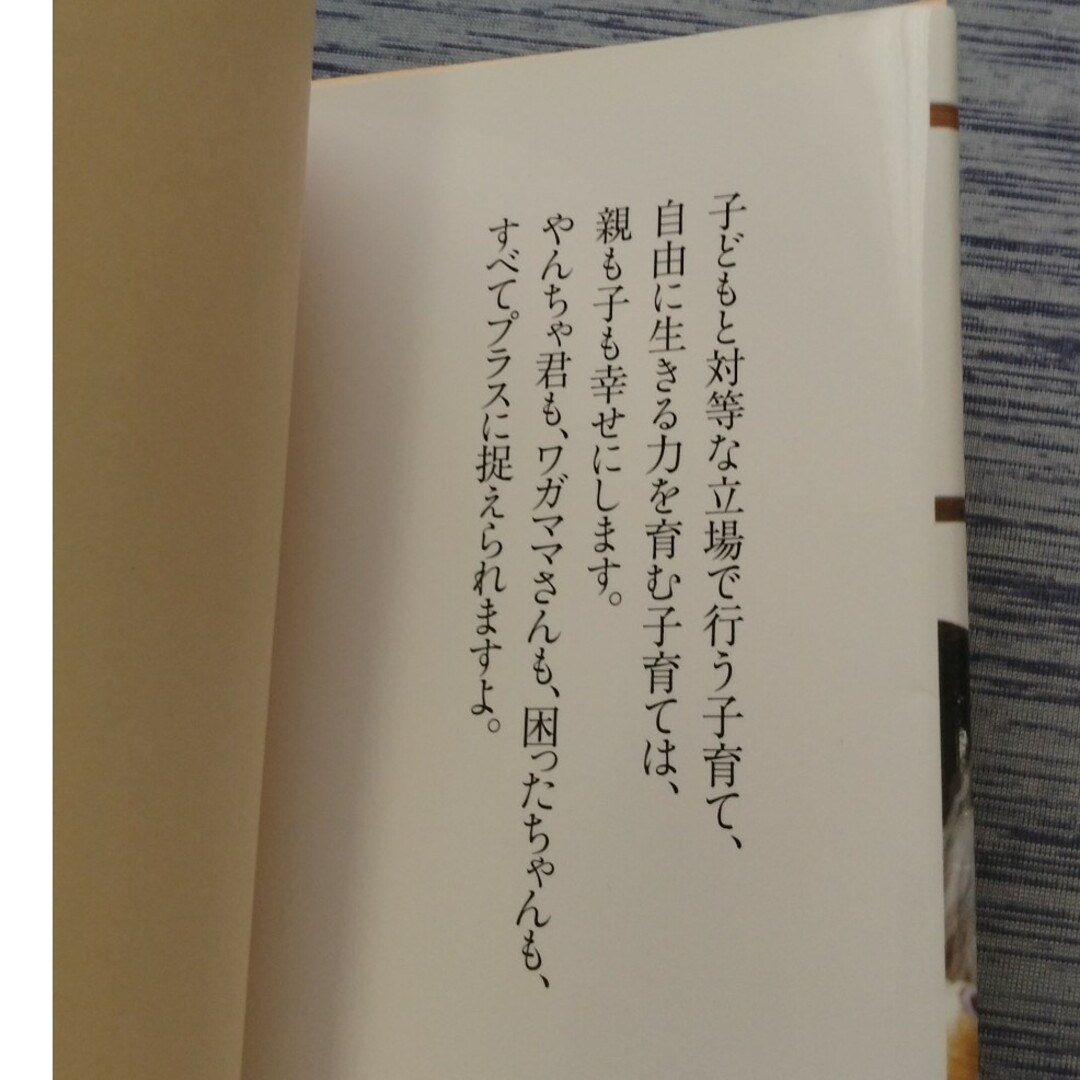 子どもと対等な立場で行う子育て、
自由に生きる力を育む子育ては、
親も子も幸せにします。
やんちゃ君も、ワガママさんも、困ったちゃんも、
すべてプラスに捉えられますよ。